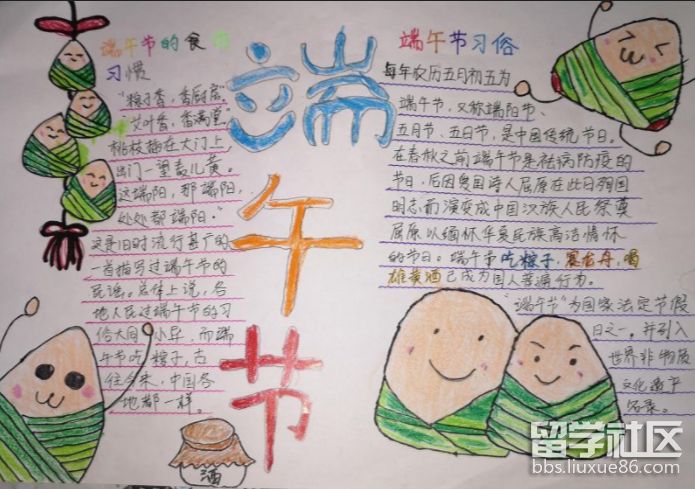 端午节的食节
习惯
"粽子香，香厨房。
"艾叶香，香满堂。
桃枝插在大门上，
出门一望麦儿黄。
这端阳，那端阳，
处处都端阳。"
这是旧时流行甚广的
一首描写过端午节的
民谣。总体上说，各
地人民过端午节的习
俗大同小异，而端
午节吃粽子，古
往今来，中国各
地都一样。
端午节
端午节习俗
每年农历五月初五为
端午节，又称端阳节、
五月节、五日节，是中国传统节日。
在春秋之前端午节是祛病防疫的
节日，后因爱国诗人屈原在此日殉国
明志而演变成中国汉族人民祭奠
屈原以缅怀华夏民族高洁情怀
的节日。端午垂吃粽子，赛龙舟，喝
雄黄酒已成为国人普遍行为。
"端午节"为国家法定节假
日之一，并列入
世界非物质
文化遗产
名录。
酒
留学社区
bbs.liuxue86.com